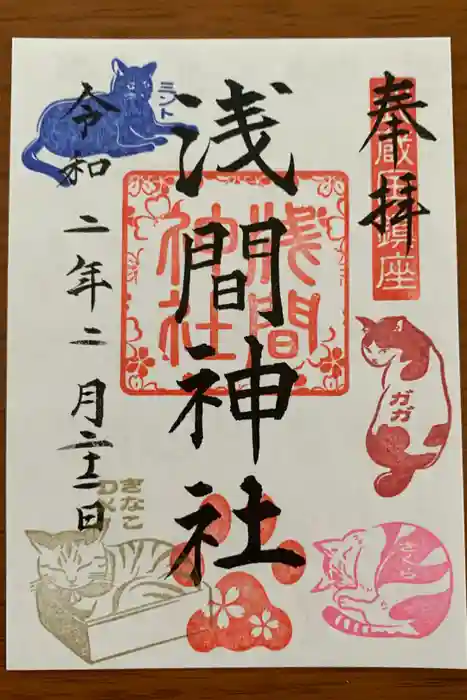 奉拝
鎮座
浅間神社
淺間
神社
令和二年二月二十二日
ミント
ガガ
さくら
きなこ